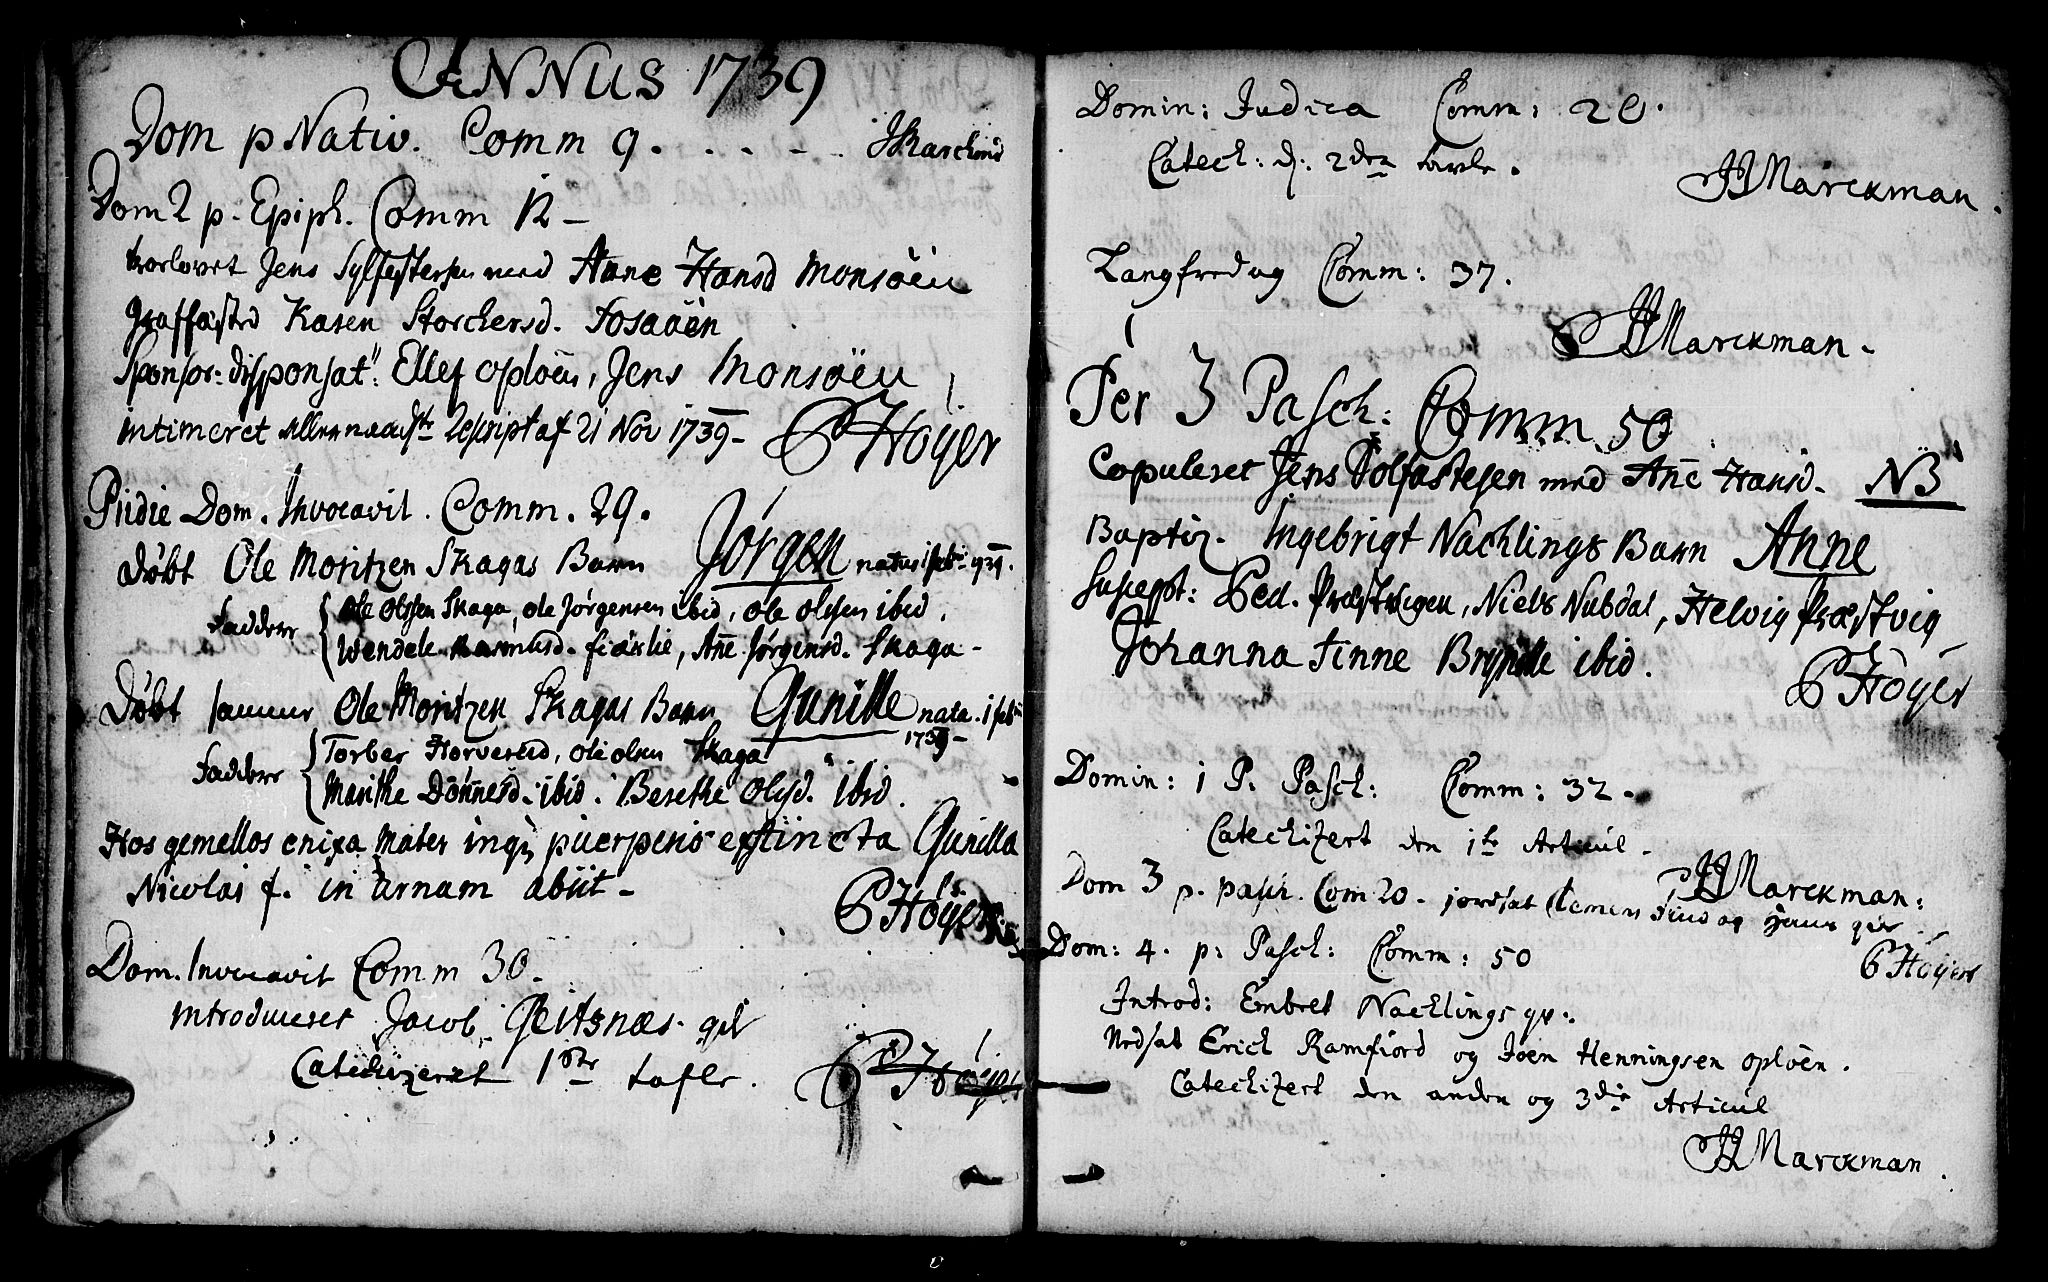 ANNUS 1739
Dom p Nativ. Comm 9. . . - - .
Dom 2 p. Epiph. Comm 12 -
trolovet Jens Sylfestersen med Anne Hansd Monsöen
Graffæsted Karen Storchersd. Fosaaen
Sponsor: disponsat: Ellef oploen, Jens Monsöen
intimeret allernaadste Rescript af 21 Nov 1739 -
PHöyer
Pridie Dom. Invocavit. Comm. 29.
Døbt Ole Moritzen Skagas Barn Jörgen natus i febr 739.
Faddere Ole Olssen Skaga, Ole Jörgensen ibid, Ole Olsen ibid.
Wendele Rasmusd. fiærlie, Añe Jörgensd. Skaga -
Døbt samme Ole Moritzen Skagas Barn Gunille nata. i febr
1739 -
Faddere Torber Horvereid, Ole Olsen Skaga
Marithe Dönnesd. ibid. Berethe Olsd. ibid.
Hos gemellos enixa mater inqz puerperio extincta Gunilla
Nicolai f. in urnam abiit -
PHöyer
Dom. Invocavit Comm 30.
Introduceret Jacob Geitsnæs qv
Catechizeret 1ste tafle.
PHöyer
Domin: Judica Comm: 20.
Catech: d: 2den tavle.
HMarckman.
Langfredag Comm: 37.
HMarckman.
Fer 3 Pasch: Comm 50
Copuleret Jens Solfastesen med Añe Hansd. NB
Baptiz. Ingebrigt Nachlings Barn Anne
Suscept: Ped. Præstvigen, Niels Nubdal, Helvig Præstvig
Johanna Finne Brynille ibid.
PHöyer
Domin: 1 P. Pasch: Comm: 32.
Catechizert den 1te Articul.
HMarckman:
Dom 3 p. pasch. Com 20. jordsat Clemen
PHöyer
Dom: 4. p: Pasch: Comm: 50
Introd: Embret Nachlings qv:
Nedsat Erich Ramfiord og Joen Henningsen oploen.
Catechizert den anden og 3die Articul
HMarckman.